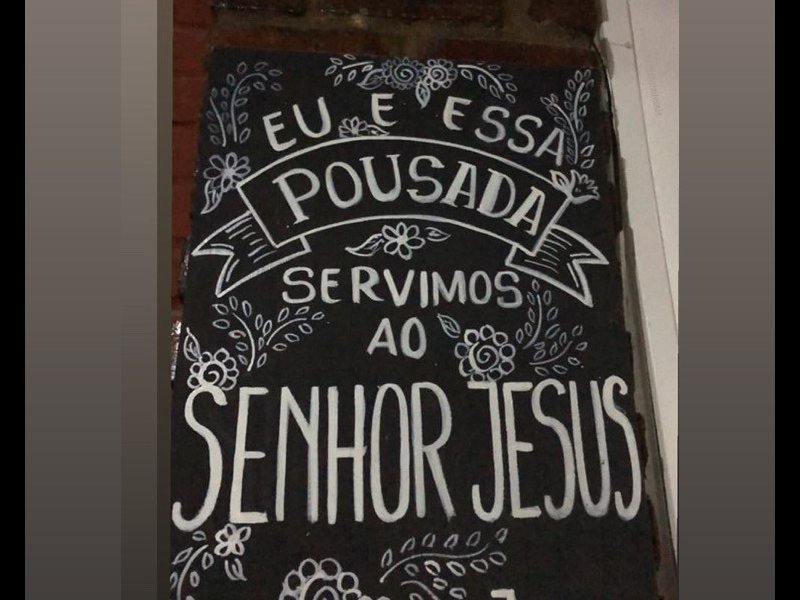 EU E ESSA
POUSADA
SERVIMOS
AO
SENHOR JESUS